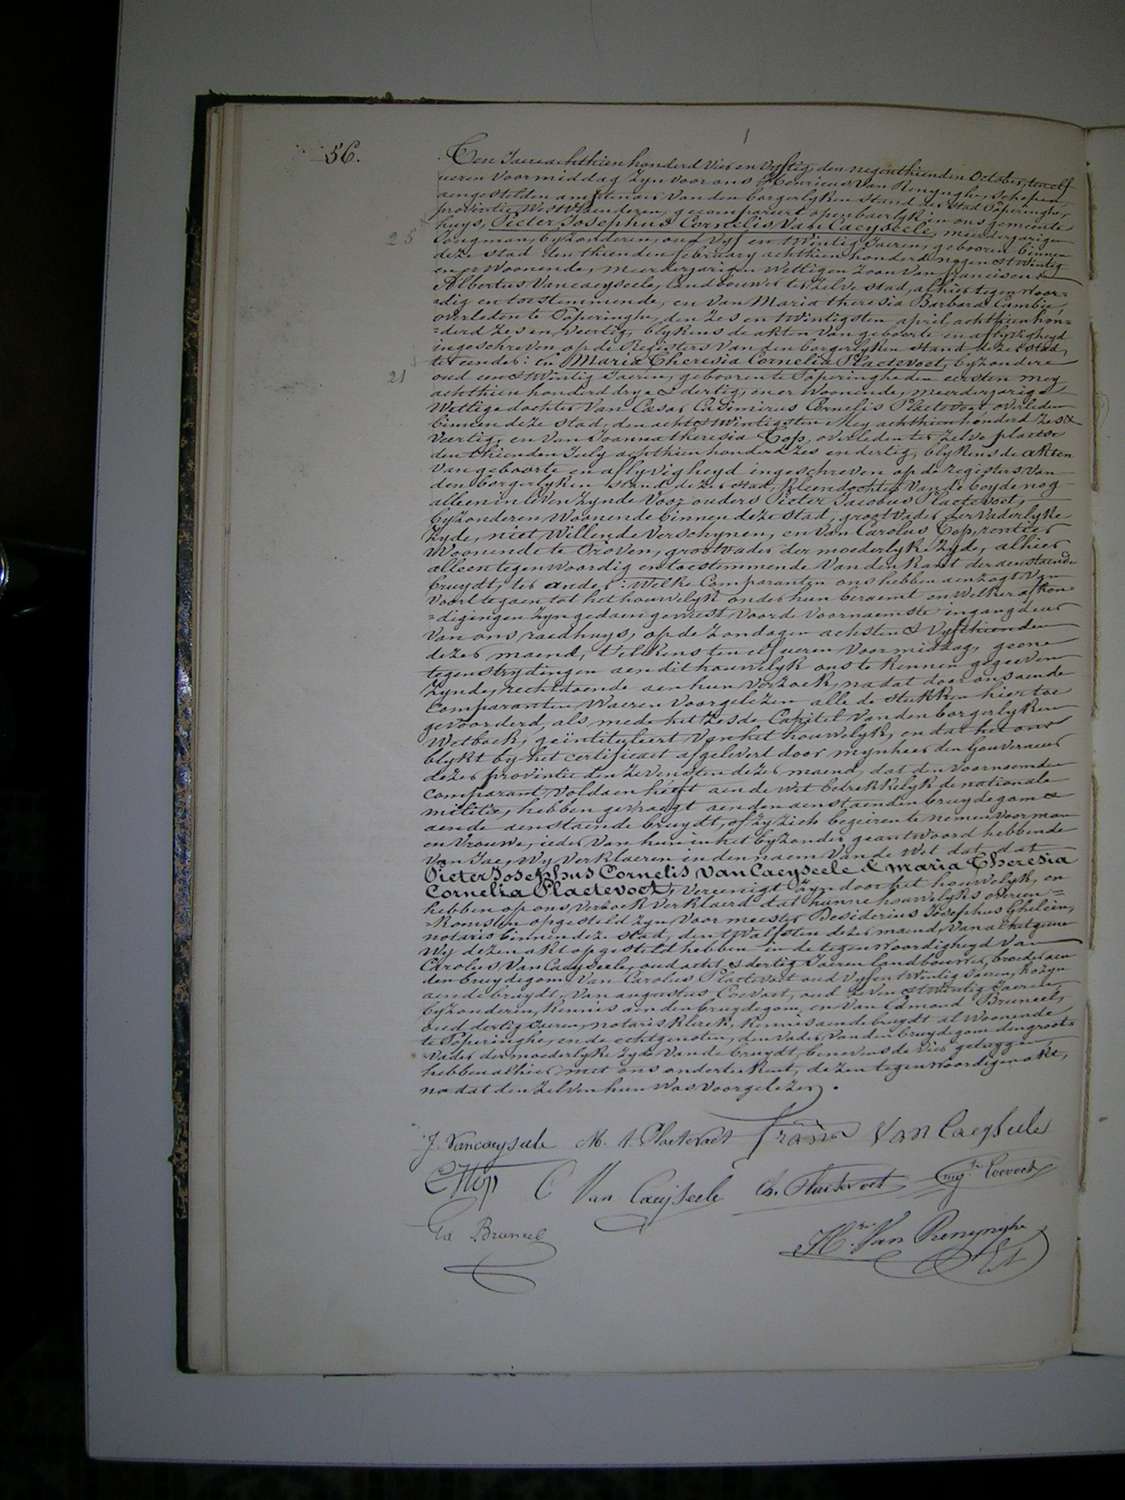 56.
Een Jaer achthien honderd Vier en Vyftig, den negenthienden October, ten elf
ueren Voormiddag, Zyn Voor ons Henricus Van Renynghe, Schepen
aengestelden amptenaer Van den borgerlyken Stand der stad Poperinghe,
provintie West Vlaenderen, gecompareert openbaerlyk in ons gemeente
huys, Pieter Josephus Cornelis Van Caeyseele, meerderjarigen
25
Jongman, byzonderen, oud Vyf en twintig Jaeren, gebooren binnen
deze stad den thienden february achthien honderd negen & twintig
en er Woonende, meerderjarigen Wettigen Zoon Van franciscus
Albertus Vancaeyseele, landbouwer te Zelve stad, alhier tegenwoor-
dig en toestemmende, en Van Maria theresia Barbara Cambie,
overleden te Poperinghe, den Zes en twintigsten april achthien hon-
=derd Zes en Veertig, blykens de akten Van geboorte en aflyvigheyd
ingeschreven op de Registers Van den borgerlyken stand dezer stad,
ter eender: En Maria Theresia Cornelia Plaetevoet, byzondere
21
oud een & twintig Jaeren, gebooren te Poperinghe den eersten mey
achthien honderd drye & dertig, en er Woonende, meerderjarige
Wettige dochter Van Cesar Casimirus Cornelis Plaetevoet, overleden
binnen deze stad, den acht & twintigsten Mey achthien honderd Zes &
Veertig, en Van Joanna theresia Top, overleden ter Zelve plaetse
den thienden July achthien honderd Zes en dertig, blykens de akten
Van geboorte en aflyvigheyd ingeschreven op de registers van
den borgerlyken stand dezer stad, kleendochter Van de beyde nog
alleen in leven Zynde Voorouders Pieter Jacobus Plaetevoet,
byzonderen, Woonende binnen deze stad, grootvader der Vaderlyke
Zyde, niet Willende Verschynen, en Van Carolus Top, rentier
Woonende te Proven, grootvader der moederlyke Zyde, alhier
alleen tegenwoordig en toestemmende Van den kant der aenstaende
bruydt, ter ander: Welke Comparanten ons hebben aenzogt Van
Voort te gaen tot het houwelyk onder hun beraemt en Welkers afkon-
=digingen Zyn gedaen geweest Voor de Voornaemste ingangdeur
Van ons raedhuys, op de Zondagen achsten & Vyfthienden
dezer maend, telkens ten elf ueren Voormiddag, geene
tegenstrydingen aen dit houwelyk ons te kennen gegeven
Zynde, rechtdoende aen hun Verzoek, na dat door ons aende
Comparanten Waeren Voorgelezen alle de stukken hier toe
gevoorderd, als mede het Zesde Capitel Van den borgerlyken
Wetboek, geïntituleert Van het houwelyk, en dat het ons
blykt by het certificaet afgelevert door mynheer den Gouverneur
dezer provintie den Zevensten dezer maend, dat den Voornoemden
Comparant, Voldaen heeft aen de Wet betrekkelyk de nationale
militie, hebben gevraegt aen den aenstaenden bruydegom &
aende aenstaende bruydt, of Zy Zich begeiren te nemen Voor man
en Vrouwe, ieder Van hun in het byzonder geantwoord hebbende
Van Jae, Wy Verklaeren in den naem Van de Wet dat, dat
Pieter Josephus Cornelis Van Caeyseele & Maria Theresia
Cornelia Plaetevoet, Vereenigt Zyn door het houwelyk, en
hebben op ons Verzoek Verklaerd dat hunne houwelyks overeen=
=komsten opgesteld Zyn Voor meester Desiderius Josephus Ghelein,
notaris binnen deze stad, den twalfsten dezer maend, Van al het gene
Wy dezen akt opgesteld hebben in de tegenwoordigheyd Van
Carolus Van Caeyseele, oud acht & dertig Jaeren landbouwer, broeder aen
den bruydegom, Van Carolus Plaetevoet oud Vyf en twintig Jaeren, kozyn
aende bruydt, Van augustus Coevoet, oud Zeven & twintig Jaeren,
byzonderen, kennis aen den bruydegom, en Van Edmond Bruneel,
oud dertig Jaeren, notaris klerk, kennis aende bruydt al Woonende
te Poperinghe, en de echtgenoten, den Vader Van den bruydegom den groot=
=Vader der moederlyke Zyde Van de bruydt, benevens de Vier getuygen
hebben alhier met ons onderteekent, dezen tegenwoordigen akt,
na dat den Zelven hun Was Voorgelezen.
J. Vancaeyseele M. t. Plaetevoet Frans Van Caeyseele
C Top C Van Caeyseele Ch. Plaetevoet Aug.te Coevoet
Ed Bruneel H.ri Van Renynghe